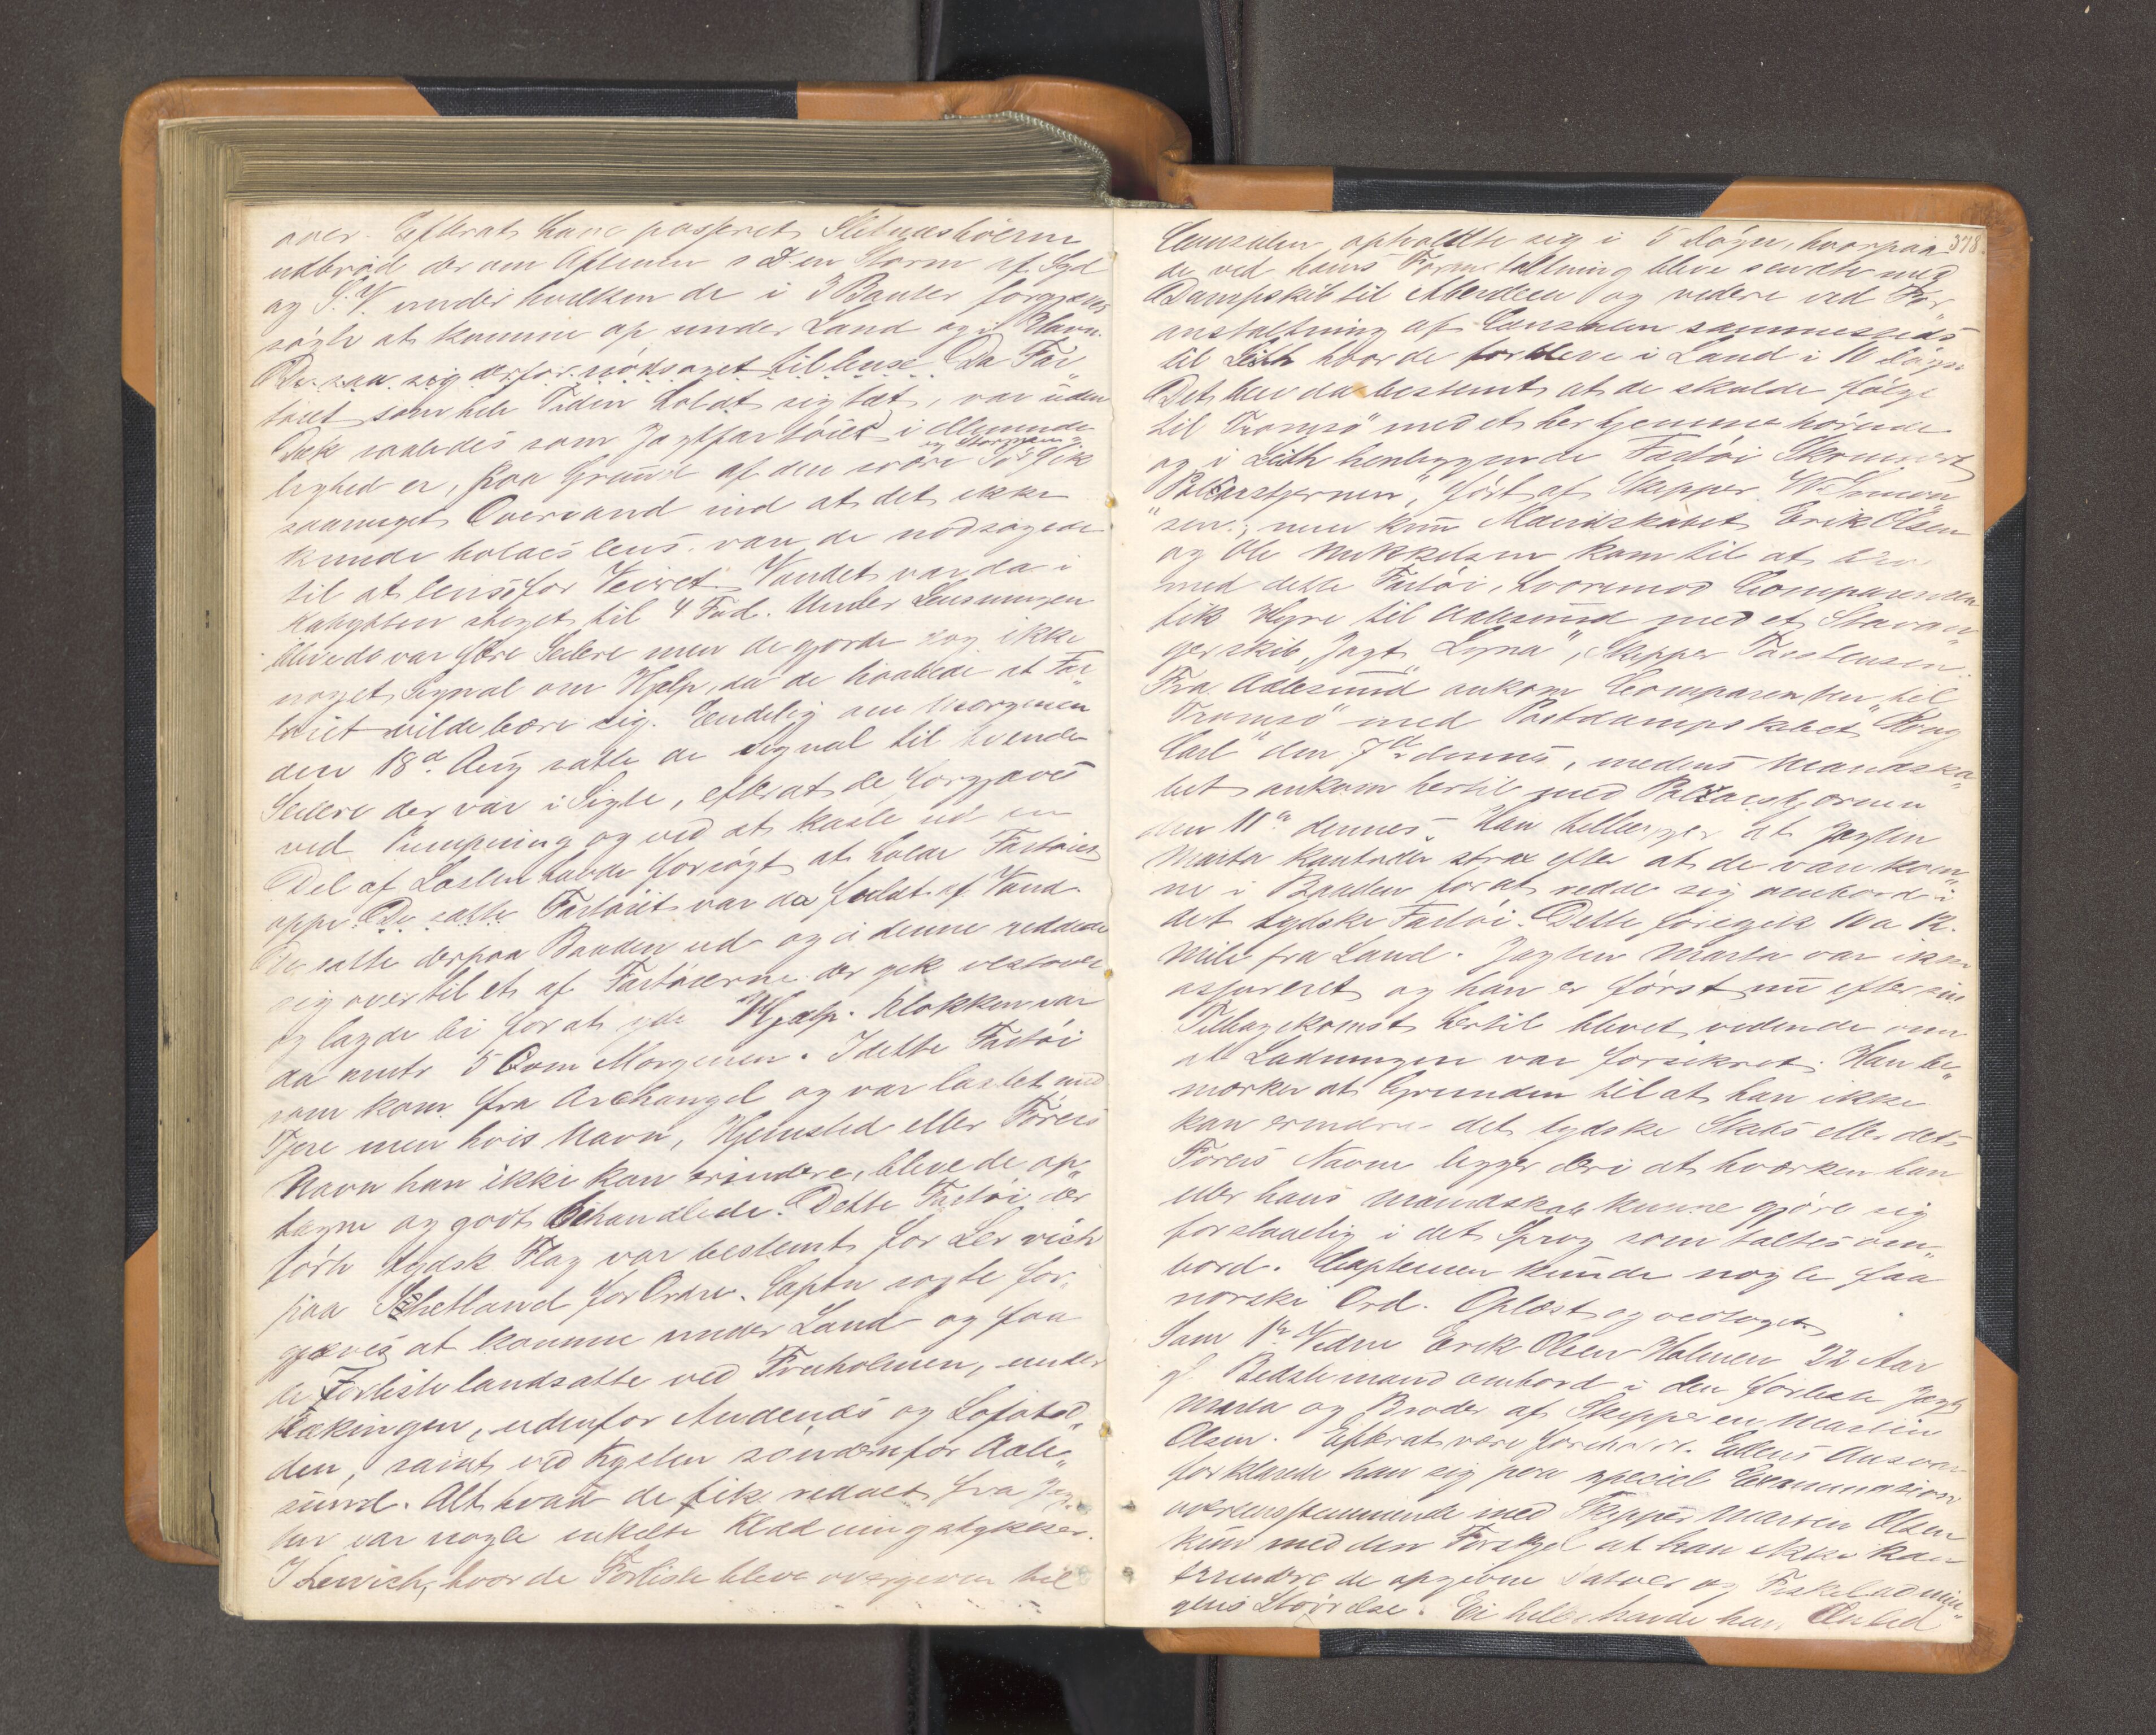 over. Efterat have passeret
udbrød der om Aftenen en Storm af Syd
og S.V. under hvilken de i 3 Vagter forgjæves
søgte at komme op under Land og i Havn.
De saa sig derfor nødsaget til lense. Da Far„
tøiet som hele Tiden holdt sig tæt, var uden
Dæk saaledes som Jagtfartøier i Alminde„
lighed er, paa Grund af den svære Sø og Stormen fik
saameget Overvand ind at det ikke
kunde holdes lens, var de nødsagede
til at lense for Veiret. Vandet var da i
Kahytten steget til 4 Fod. Under Lensningen
blev de var flere Seilere men de gjorde dog ikke
noget Signal om Hjelp, da de haabede at Far„
tøiet vilde bære sig. Endelig om Morgenen
den 18de Aug satte de Signal til tvende
Seilere der var i Sigte, efterat de forgjæves
ved Pumpning og ved at kaste ud en
Del af Lasten havde forsøgt at holde Fartøiet
oppe. De satte Fartøiet var da fyldt af Vand.
De satte derpaa Baaden ud og i denne reddede
sig over til et af Fartøierne der gik vestover
og lagde bi for at yde Hjælp. Klokken var
da omtr 5 om Morgenen. I dette Fartøi
som kom fra Archangel og var lastet med
Tjere men hvis Navn, Hjemsted eller Førers
Navn han ikke kan erindre, bleve de op„
tagne og godt behandlede. Dette Fartøi der
førte tydsk Flag var bestemt for Lervich
paa Shetland for Ordre. Captn søgte for„
gjæves at komme under Land og faa
de Forliste landsatte ved Fruholmen, under
Hækingen, udenfor Andenæs og Lofotod„
den, samt ved Kysten søndenfor Aale„
sund. Alt hvad de fik reddet fra Jag„
ten var nogle enkelte Klædningsstykker.
I Lervich, hvor de Forliste bleve overgiven til
378.
Consulen, opholdte sig i 5 Døgn, hvorpaa
de ved hans Foranstaltning bleve sendte med
Dampskib til Aberdeen og videre ved For„
anstaltning af Consulen sammesteds
til Leith hvor de forbleve i Land i 10 Døgn
Det blev da bestemt at de skulde følge
til Tromsø med et her hjemmehørende
og i Leith henliggende Fartøi Skonnert
„Polarstjernen„ ført af Skipper W.
„sen„; men kun Mandskabet Erik Olsen
og Ole Mikkelsen kom til at
med dette Fartøi, hvorimod Comparenten
fik Hyre til Aalesund med et Stavan„
ger skib, Jagt „Lyna„, Skipper Torstensen.
Fra Aalesund ankom Comparenten til
Tromsø med Postdampskibet „Kong
Carl„ den 7de dennes, medens Mandska„
bet ankom hertil med Polarstjernen
den 11te dennes. Han tillægger at Jagten
Marta kantrede strax efter at de var kom„
ne i Baaden for at redde sig ombord i
det tydske Fartøi. Dette foregik 10 a 12
Mile fra Land. Jagten Marta var ikke
assureret og han er først nu efter sin
Tilbagekomst hertil blevet vidende om
at Ladningen var forsikret. Han be„
mærker at Grunden til at han ikke
kan erindre det tydske Skibs eller dets
Førers Navn ligger deri at hverken han
eller hans Mandskab kunne gjøre sig
forstaaelig i det Sprog som taltes om„
bord. Capteinen kunde nogle faa
norske Ord. Oplæst og vedtaget.
Som 1te Vidne Erik Olsen Holmen 22 Aar
gl. Bedstemand ombord i den forliste Jagt
Marta og Broder af Skipperen Martin
Olsen. Efterat være foreholdt Edens Ansvar
forklarede han sig paa speciel Examination
overensstemmende med Skipper Martin Olsen
kun med den Forskjel at han ikke kan
erindre de opgivne Datoer og Fiskeladnin„
gens Størrelse. Ei heller havde han